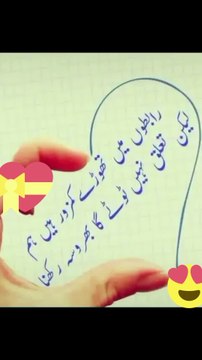 رابطوں میں تھوڑے کمزور ہیں ہم
لیکن تعلق نہیں ٹوٹے گا بھروسہ رکھنا